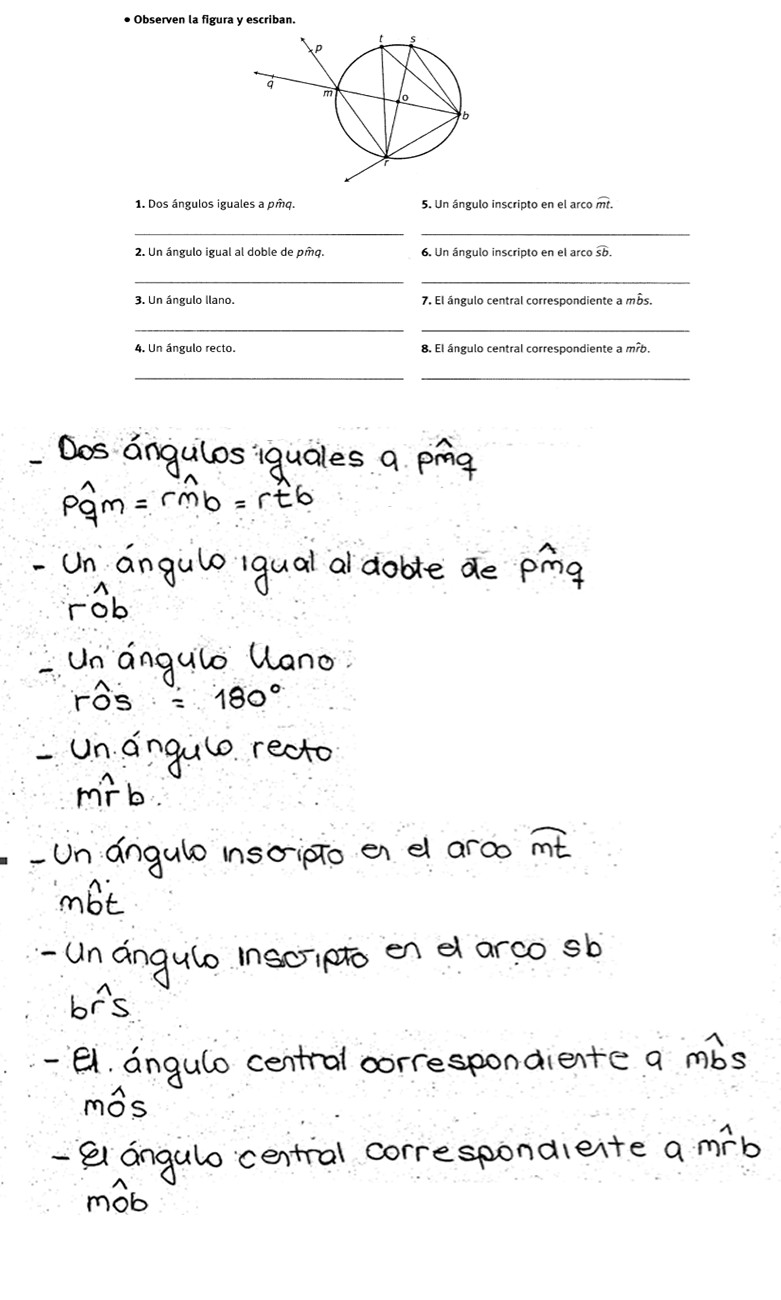 • Observen la figura y escriban.
t s
p
q
m
o
b
r
1. Dos ángulos iguales a pm̂q.
5. Un ángulo inscripto en el arco m͡t.
2. Un ángulo igual al doble de pm̂q.
6. Un ángulo inscripto en el arco s͡b.
3. Un ángulo llano.
7. El ángulo central correspondiente a mb̂s.
4. Un ángulo recto.
8. El ángulo central correspondiente a mr̂b.
- Dos ángulos iguales a pm̂q
pq̂m = rm̂b = rt̂b
- Un ángulo igual al doble de pm̂q
rôb
- Un ángulo llano.
rôs = 180°
- Un ángulo recto
mr̂b.
- Un ángulo inscripto en el arco m͡t
mb̂t
- Un ángulo inscripto en el arco sb
br̂s
- El ángulo central correspondiente a mb̂s
môs
- El ángulo central correspondiente a mr̂b
môb